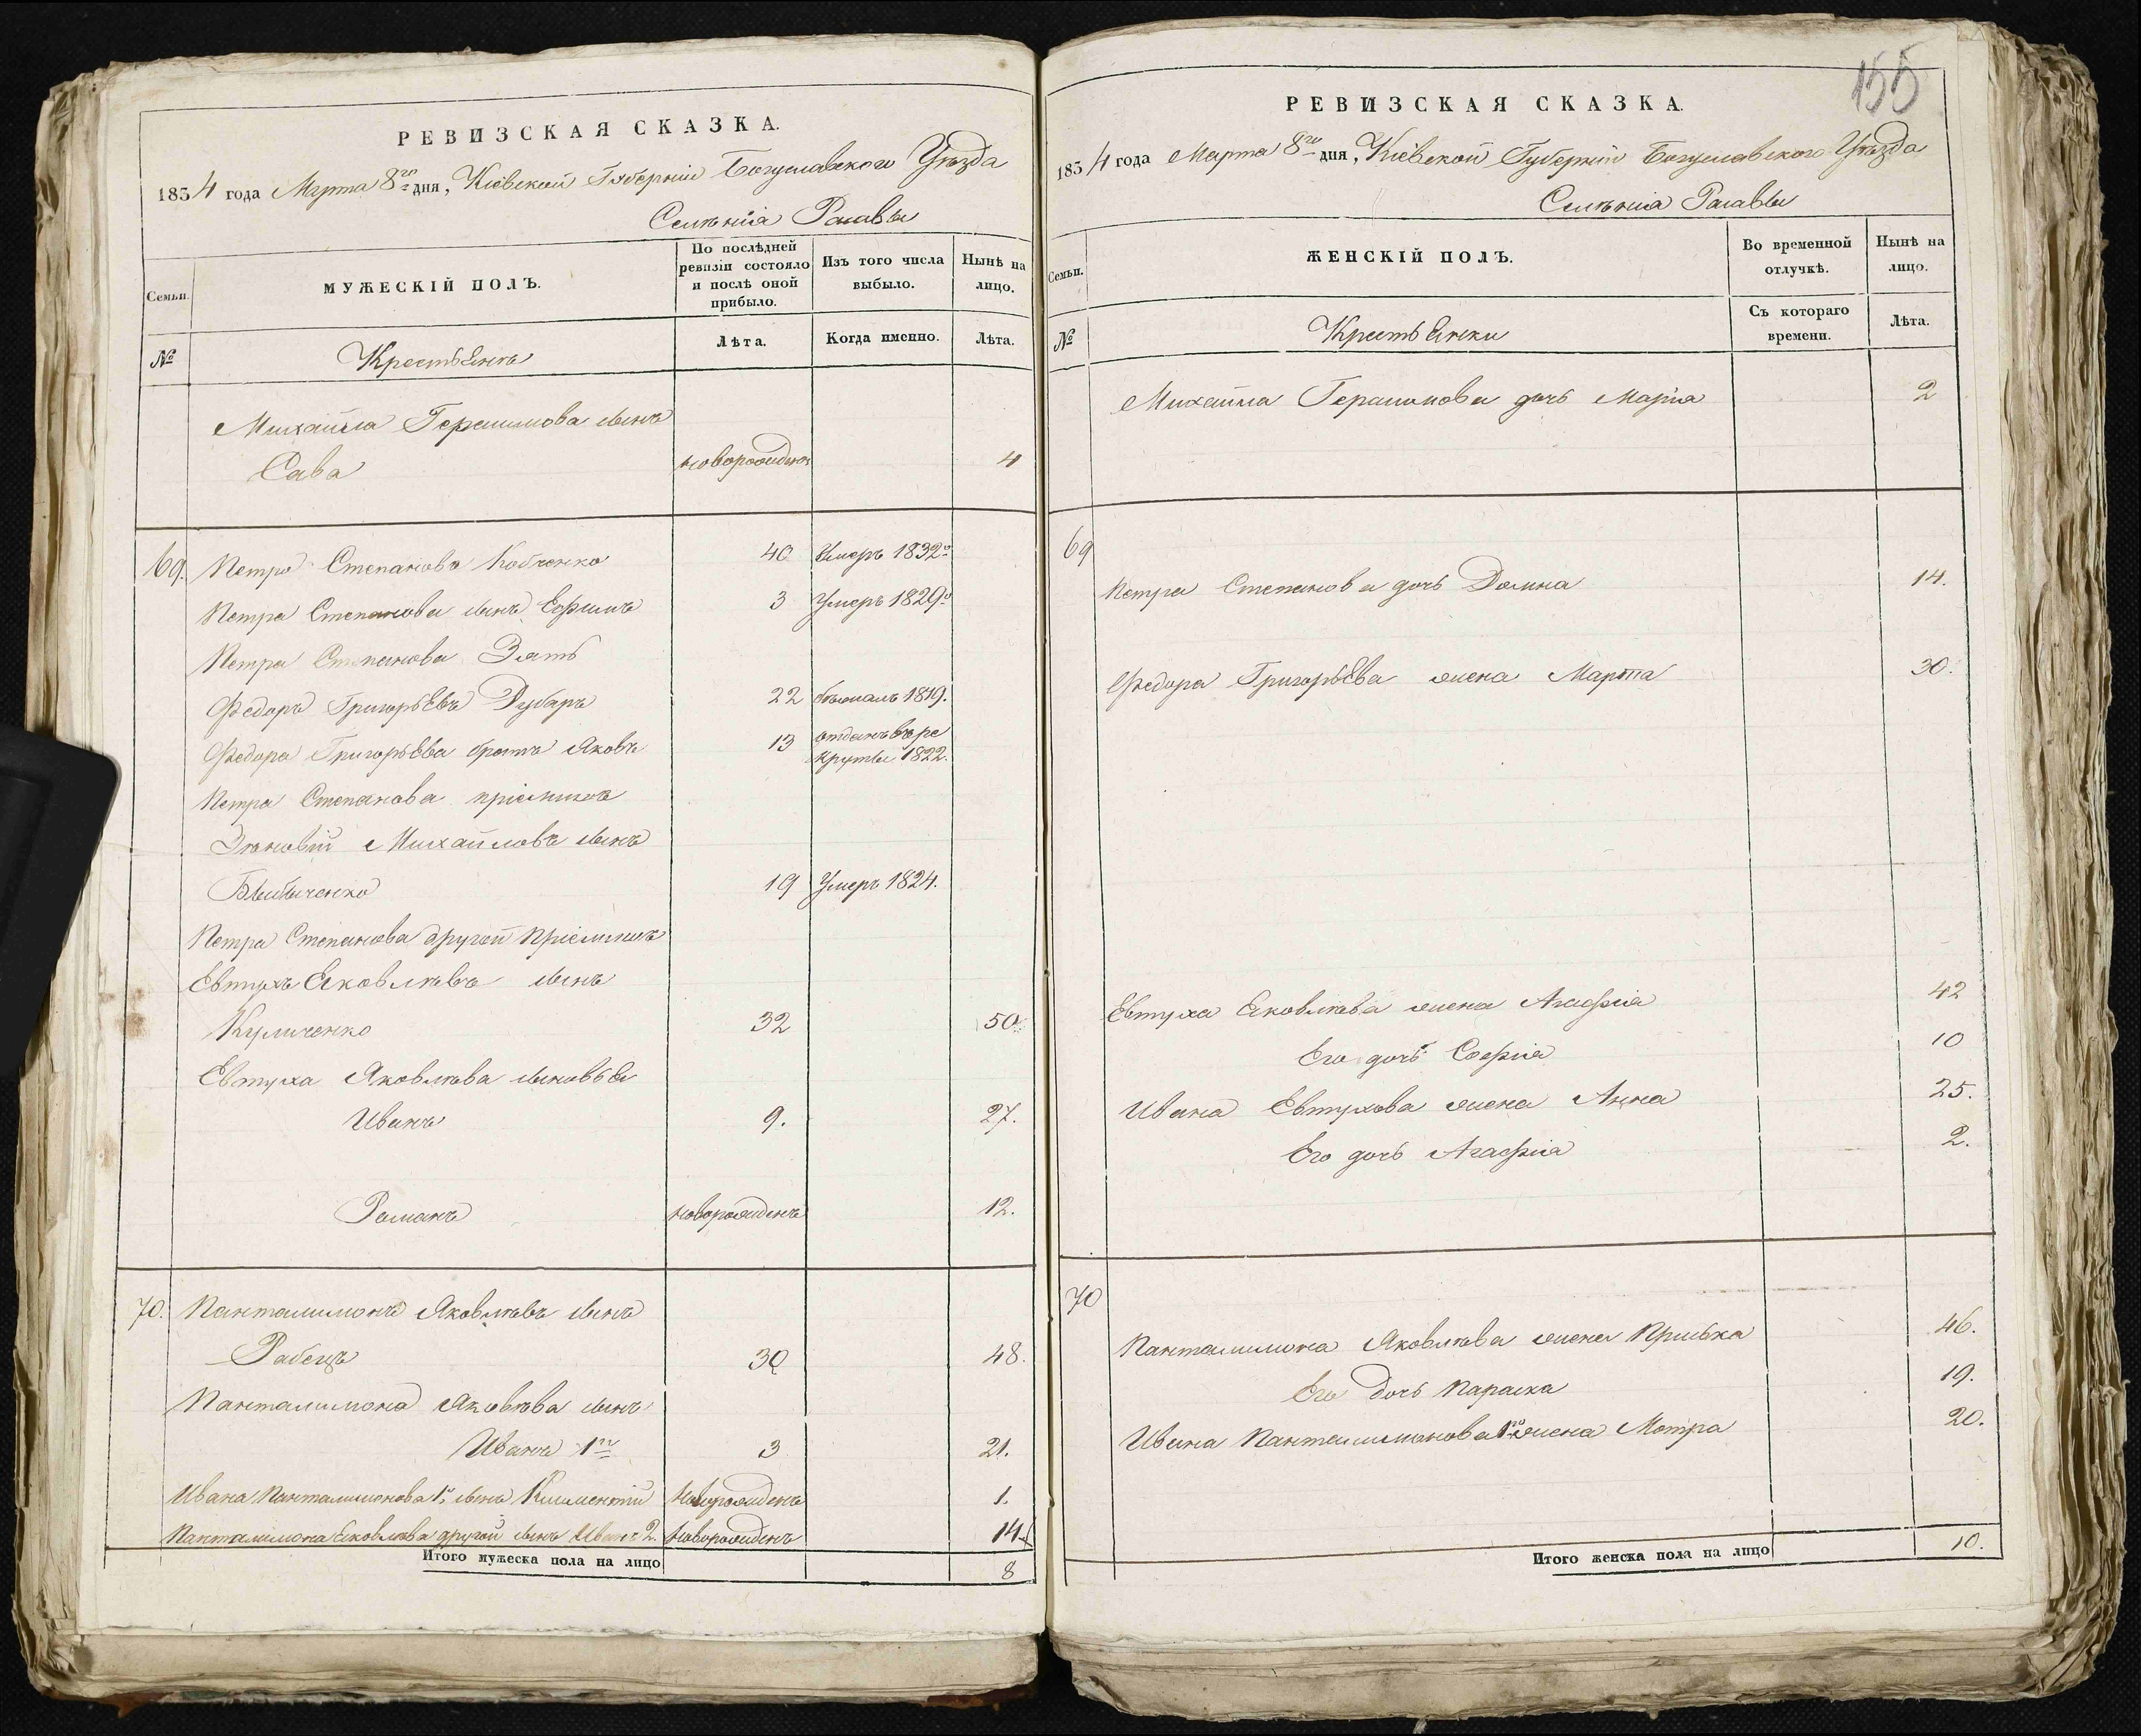 РЕВИЗСКАЯ СКАЗКА.
1834 года Марта 8го дня, Кіевской Губерніи Богуславскаго Уѣзда
Селѣнія Расавы
Семьи.
МУЖЕСКІЙ ПОЛЪ.
По послѣдней ревизіи состояло и послѣ оной прибыло.
Изъ того числа выбыло.
Нынѣ на лицо.
№
Крестьянъ
Лѣта.
Когда именно.
Лѣта.
Михайла Герасимова сынъ
Сава новорожденъ 4
69. Петро Степановъ Кобченко 40 Умеръ 1832го
Петра Степанова сынъ Ефимъ 3 Умеръ 1829го
Петра Степанова Зять
Федоръ Григорьевъ Дубаръ 22 бѣжалъ 1819.
Федора Григорьева братъ Яковъ 13 отданъ въ ре
круты 1822.
Петра Степанова пріемышъ
Зѣновій Михайловъ сынъ
19 Умеръ 1824.
Петра Степанова другой пріемышъ
Евтухъ Яковлѣвъ сынъ
Куличенко 32 50
Евтуха Яковлѣва сыновья
Иванъ 9. 27.
Романъ новорожденъ 12.
70. Панталимонъ Яковлѣвъ сынъ
Рабецъ 30 48.
Панталимона Яковлѣва сынъ
Иванъ 1й 3 21.
Ивана Панталимонова 1го сынъ Климентій новорожденъ 1.
Панталимона Яковлѣва другой сынъ Иванъ 2 новорожденъ 14
Итого мужеска пола на лицо 8
155
РЕВИЗСКАЯ СКАЗКА.
1834 года Марта 8го дня, Кіевской Губерніи Богуславского Уѣзда
Селѣнія Расавы
Семьи.
ЖЕНСКІЙ ПОЛЪ.
Во временной отлучкѣ.
Нынѣ на лицо.
№
Крестьянки
Съ котораго времени.
Лѣта.
Михайла Герасимова дочь Марія 2
69
Петра Степанова дочь Домна 14.
Федора Григорьева жена Марта 30.
Евтуха Яковлѣва жена Агафія 42
Его дочь Софія 10
Ивана Евтухова жена Анна 25.
Его дочь Агафія 2.
70
Панталимона Яковлѣва жена Приська 46.
Его дочь Параска 19.
Ивана Панталимонова 1го жена Мотра 20.
Итого женска пола на лицо 10.